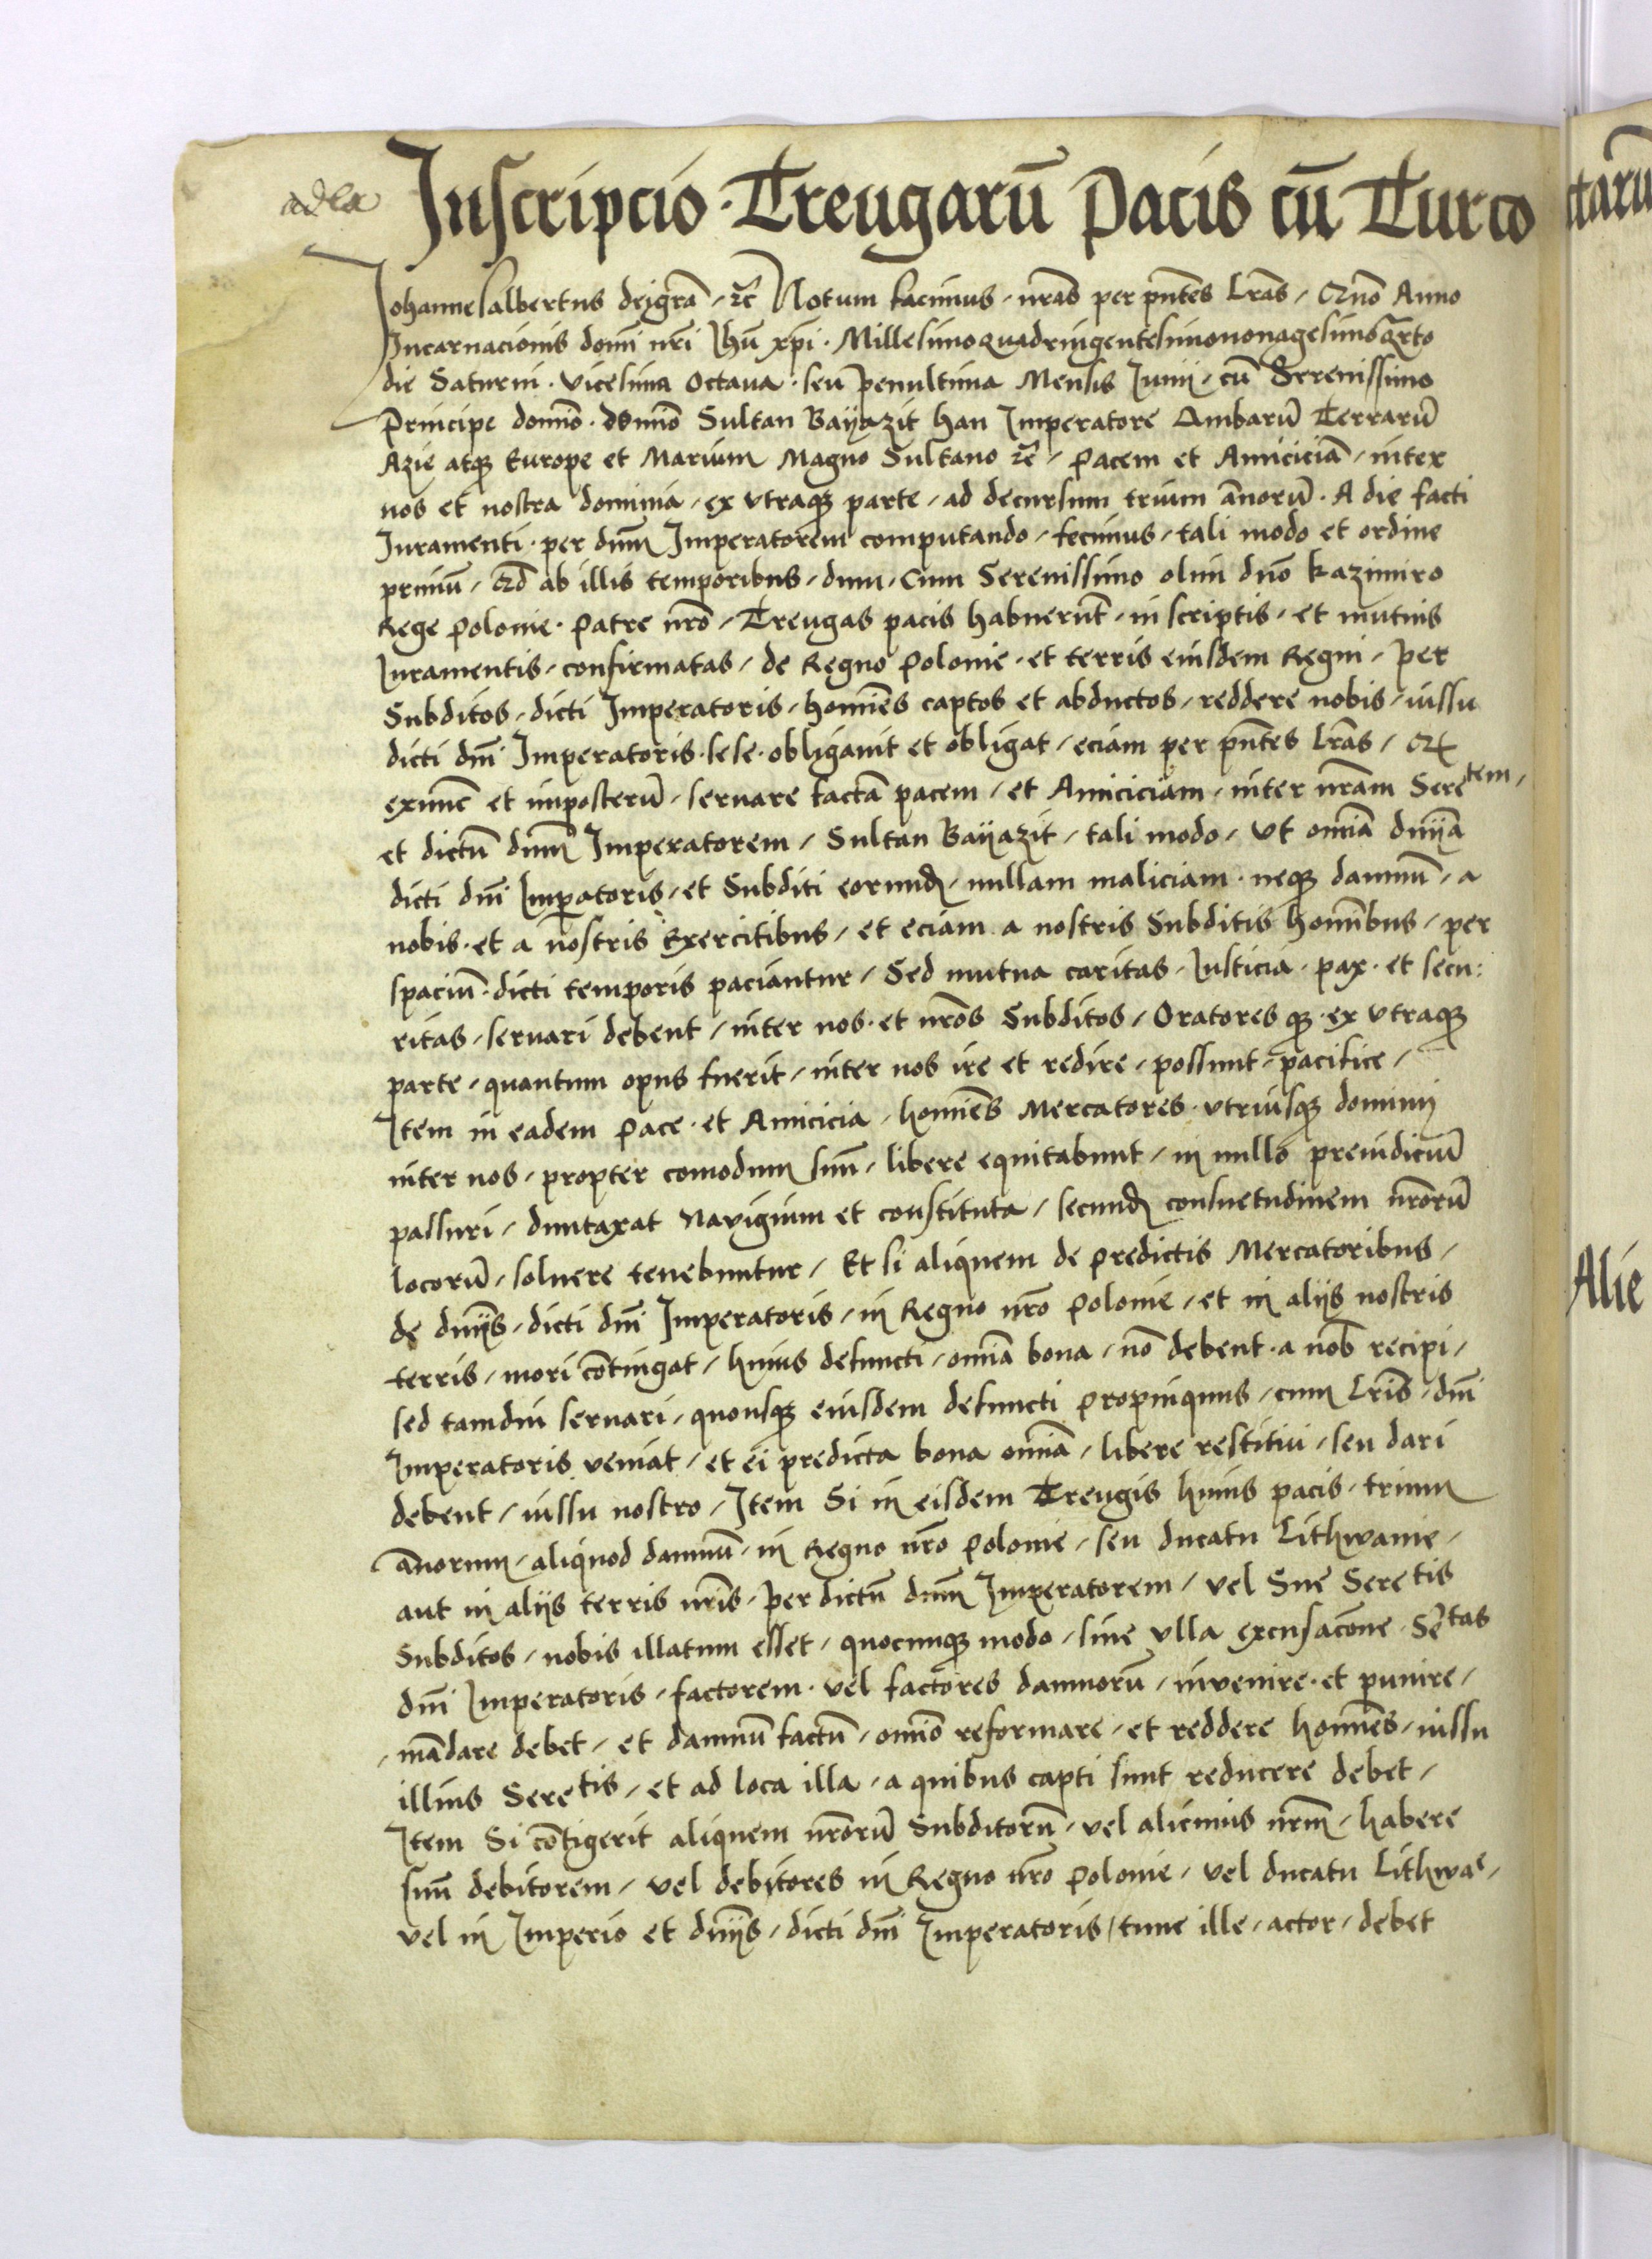 adla
Inscripcio · Treugarū Pacis cū Turco
Johannesalbertus deigrā / ꝛc̄ Notum facimus / nrās per pn̄tes lrās / Qnō Anno
Incarnacionis domī nrī Jhū xp̄i · Millesimoquadringentesimononagesimoqrto
die Saturni · vicesima Octaua · seu penultima Mensis Junij / cū Serenissimo
Principe domīo · domīo Sultan Bayazit han Imperatore Ambarū Terrarū
Azie atqꝫ Europe et Marium Magno Sultano ꝛc̄ / Pacem et Amiciciā / inter
nos et nostra dominia / ex vtraqꝫ parte / ad decursum trium ānorū · A die facti
Iuramenti · per dnm̄ Imperatorem computando / fecimus / tali modo et ordine
primū / Qd ab illis temporibus / dum / Cum Serenissimo olim dnō Kazimiro
Rege Polonie · Patre nrō / Treugas pacis habuerūt / in scriptis / et mutuis
Iuramentis / confirmatas / de Regno Polonie / et terris eiusdem Regni / per
Subditos / dicti Imperatoris / homīes captos et abductos / reddere nobis / iussu
dicti dnī Imperatoris · sese · obligauit et obligat / eciam per pn̄tes lrās /
exnunc et imposterū / seruare factā pacem / et Amiciciam / inter nrām Sere tem /
et dictū dnm̄ Imperatorem / Sultan Bayazit / tali modo / vt omīa dnīja
dicti dnī Imp̄atoris / et Subditi eorundꝫ / nullam maliciam / neqꝫ damnū / a
nobis · et a nostris Exercitibus / et eciam a nostris Subditis homībus / per
spaciū · dicti temporis paciantur / Sed mutua caritas / Iusticia · pax · et secu:
ritas / seruari debent / inter nos · et nrōs Subditos / Oratores qꝫ · ex vtraqꝫ
parte / quantum opus fuerit / inter nos ire et redire / possunt / pacifice /
Item in eadem Pace · et Amicicia / homīes Mercatores · vtriusqꝫ dominij
inter nos / propter comodum suū / libere equitabunt / in nullo preiudiciū
passuri / duntaxat Navigium et constituta / secundꝫ consuetudinem nrōrū
locorū / soluere tenebuntur / Et si aliquem de predictis Mercatoribus /
de dnijs / dicti dnī Imperatoris / in Regno nrō Polonie / et in alijs nostris
terris / mori cōtingat / huius defuncti / omīa bona / nō debent · a nob recipi /
sed tamdiu seruari / quousqꝫ eiusdem defuncti propinquus / cum lrīs / dnī
Imperatoris veniat / et ei predicta bona omīa / libere restitui / seu dari
debent / iussu nostro / Item Si in eisdem Treugis huius pacis / trium
ānorum / aliquod damnū / in Regno nrō Polonie / seu ducatu Lithwanie /
aut in alijs terris nrīs / per dictū dnm̄ Imperatorem / vel Sue Sere tis
Subditos / nobis illatum esset / quocunqꝫ modo / sine vlla excusacōne / Sē tas
dnī Imperatoris / factorem · vel factores damnorū / invenire · et punire /
mādare debet / et damnū factū / omīo reformare / et reddere homīes / iussu
illius Sere tis / et ad loca illa / a quibus capti sunt reducere debet /
Item Si cōtigerit aliquem nrōrū Subditorū / vel alicuius nrm̄ / habere
suū debitorem / vel debitores in Regno nrō Polonie / vel ducatu Lithwae /
vel in Imperio et dnijs / dicti dnī Imperatoris / tunc ille / actor / debet
Alie